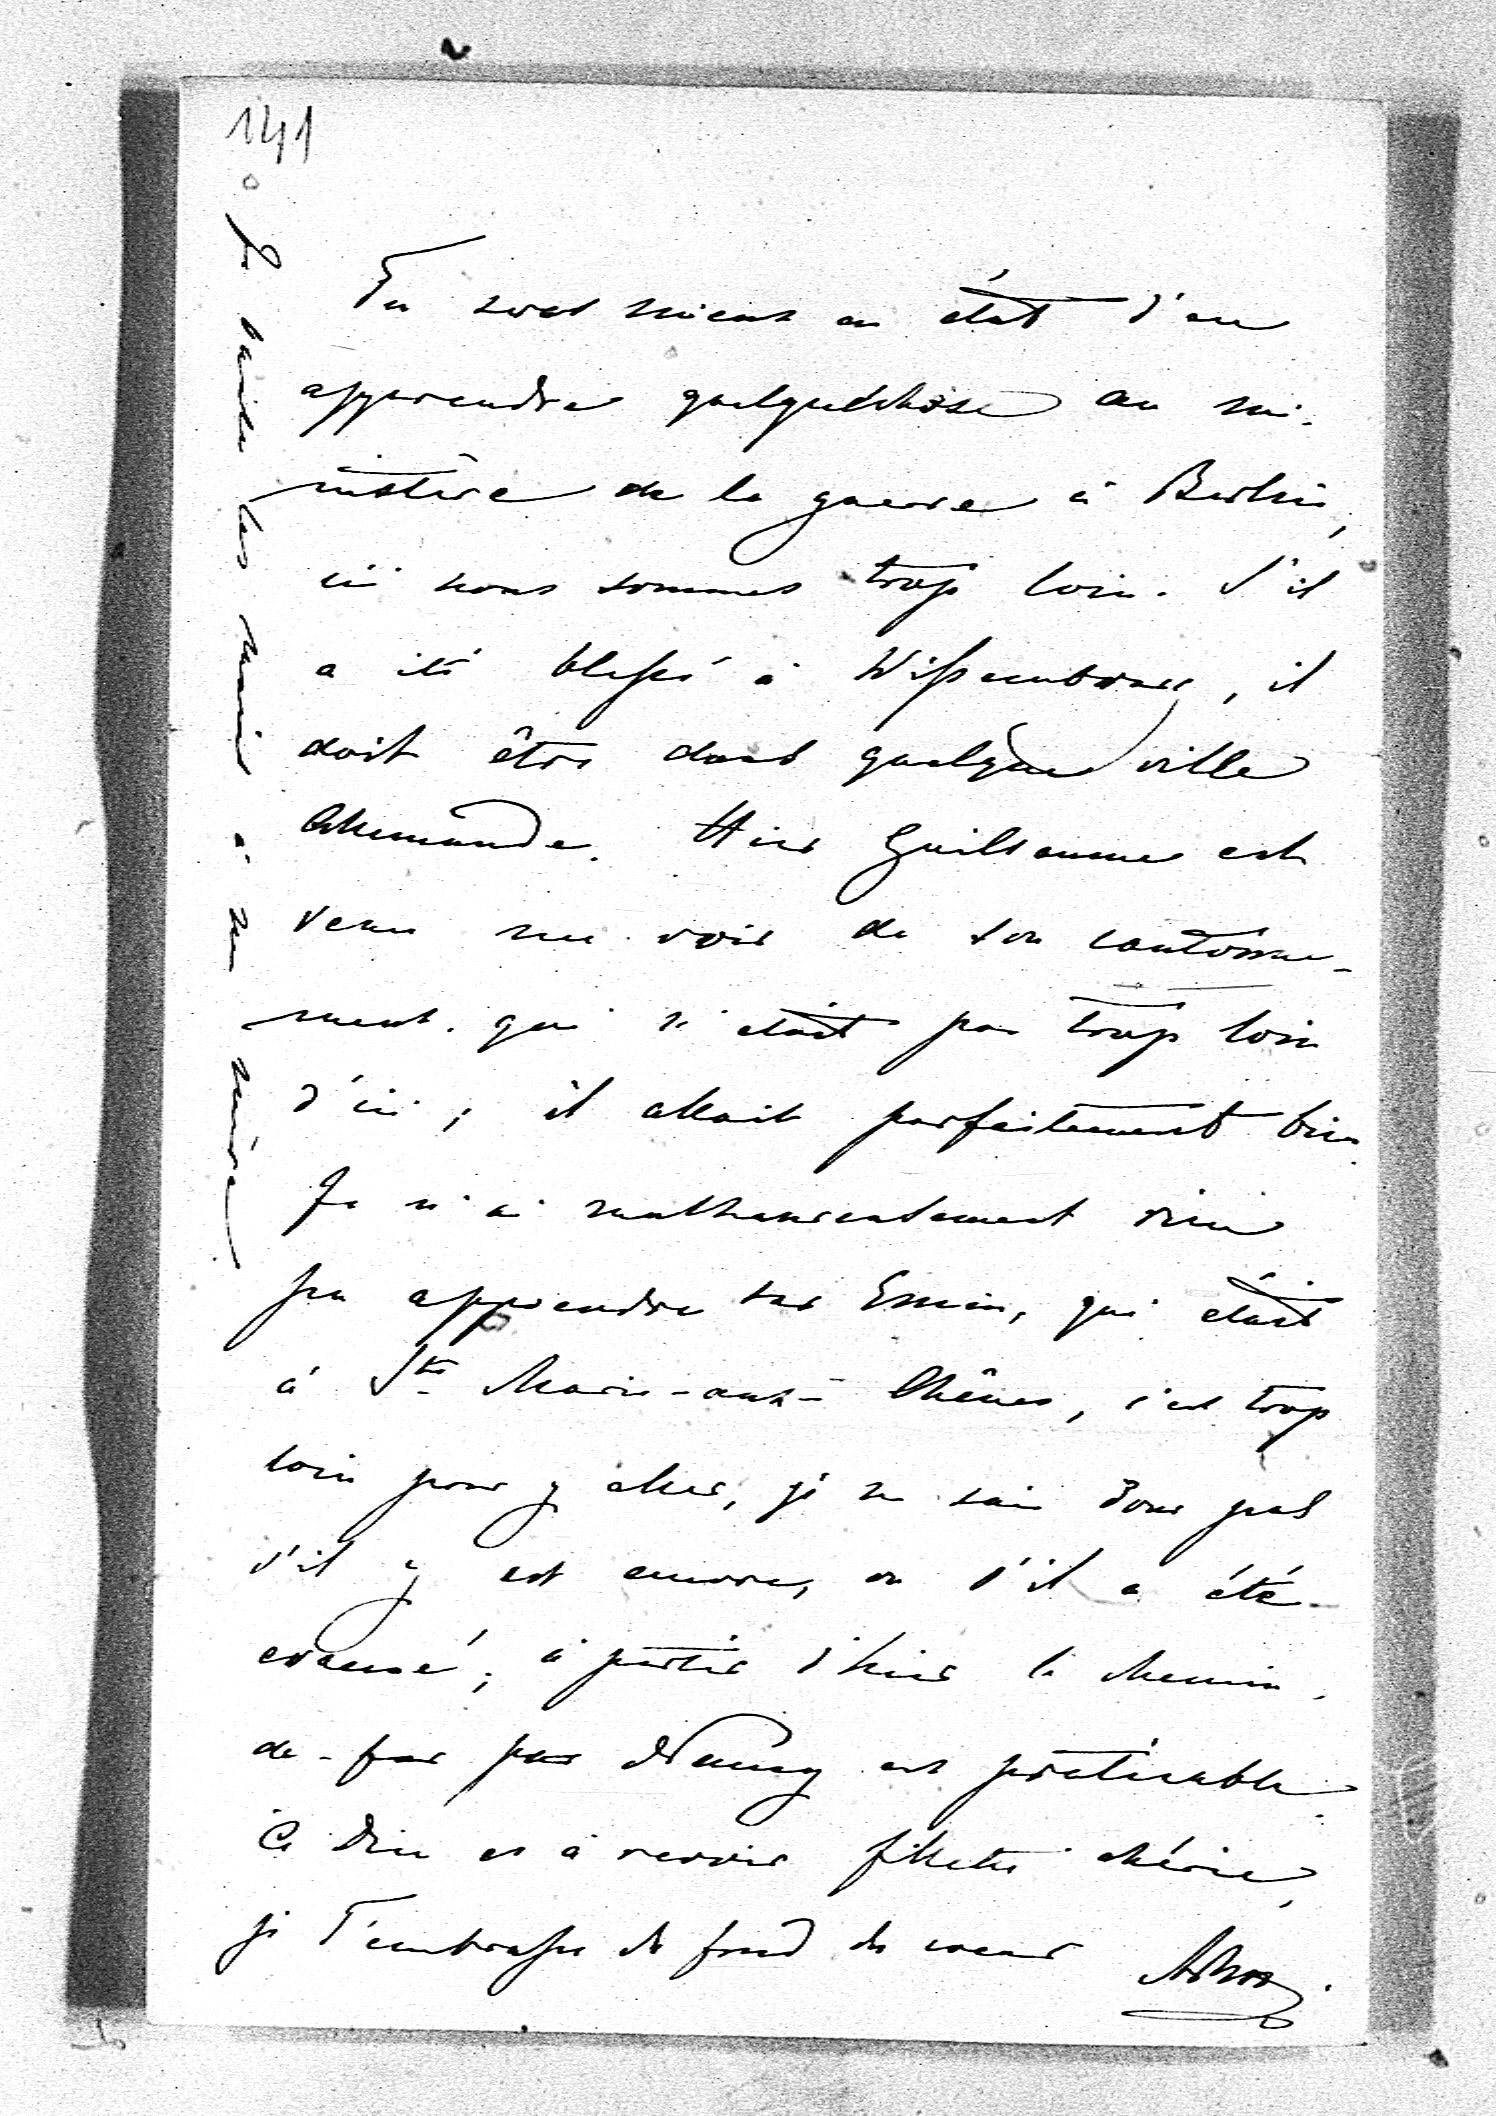 141
Tu seras mieux en état d'en
apprendre quelquechose au mi-
nistère de la guerre à Berlin,
ici nous sommes trop loin. S'il
a été blessé à Wissembourg, il
doit être dans quelque ville
Allemande. Hier Guillaume est
venu me voir de son cantonne-
ment qui n'était pas trop loin
d'ici; il allait parfaitement bien.
Je n'ai malheureusement rien
pu apprendre sur Emin, qui était
à Ste Marie-aux-Chênes, c'est trop
loin pour y aller, je ne sais donc pas
s'il y est encore, ou s'il a été
évacué; à partir d'hier le chemin
de-fer par Nancy est praticable.
A Dieu et à revoir fillette chérie,
je t'embrasse du fond du coeur
Je baise les mains à ma mère